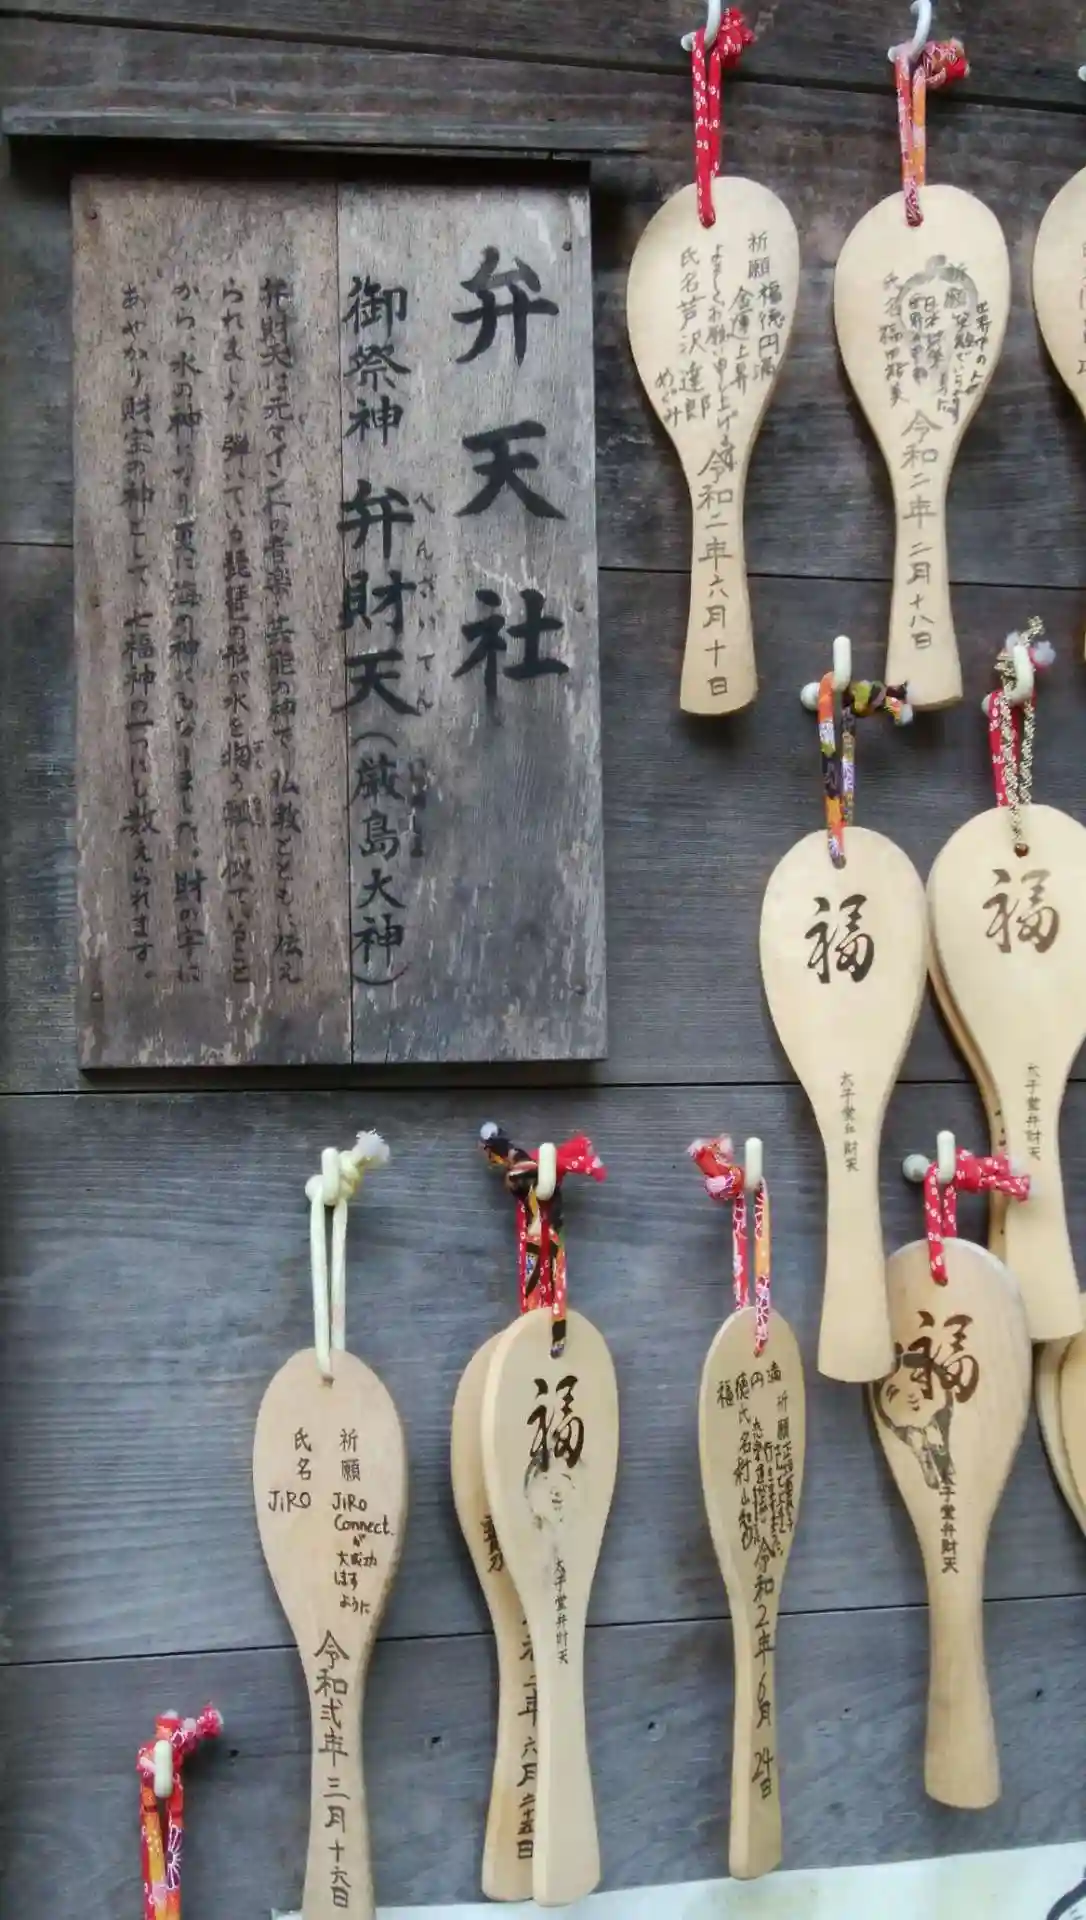 弁天社
御祭神 弁財天(厳島大神)
べんざいてん
弁財天は元々インドの音楽・芸能の神で、仏教とともに伝え
られました。弾いている琵琶の形が水を掬う瓢に似ていること
から、水の神になり更に海の神にもなりました。財の字に
あやかり財宝の神として、七福神の一つにも数えられます。
祈願 福徳円満
金運上昇
よろしくお願い申し上げます
氏名 芦沢達郎
めぐみ
令和二年六月十日
祈願
世界中の人
氏名 福田
令和二年二月十八日
福
太子堂弁財天
福
太子堂弁財天
福
太子堂弁財天
祈願
JiRO
Connect.
が
大成功
します
ように
氏名
JiRO
令和弐年三月十六日
福
太子堂弁財天
二年六月二十五日
祈願
福徳円満
氏名
令和2年6月24日